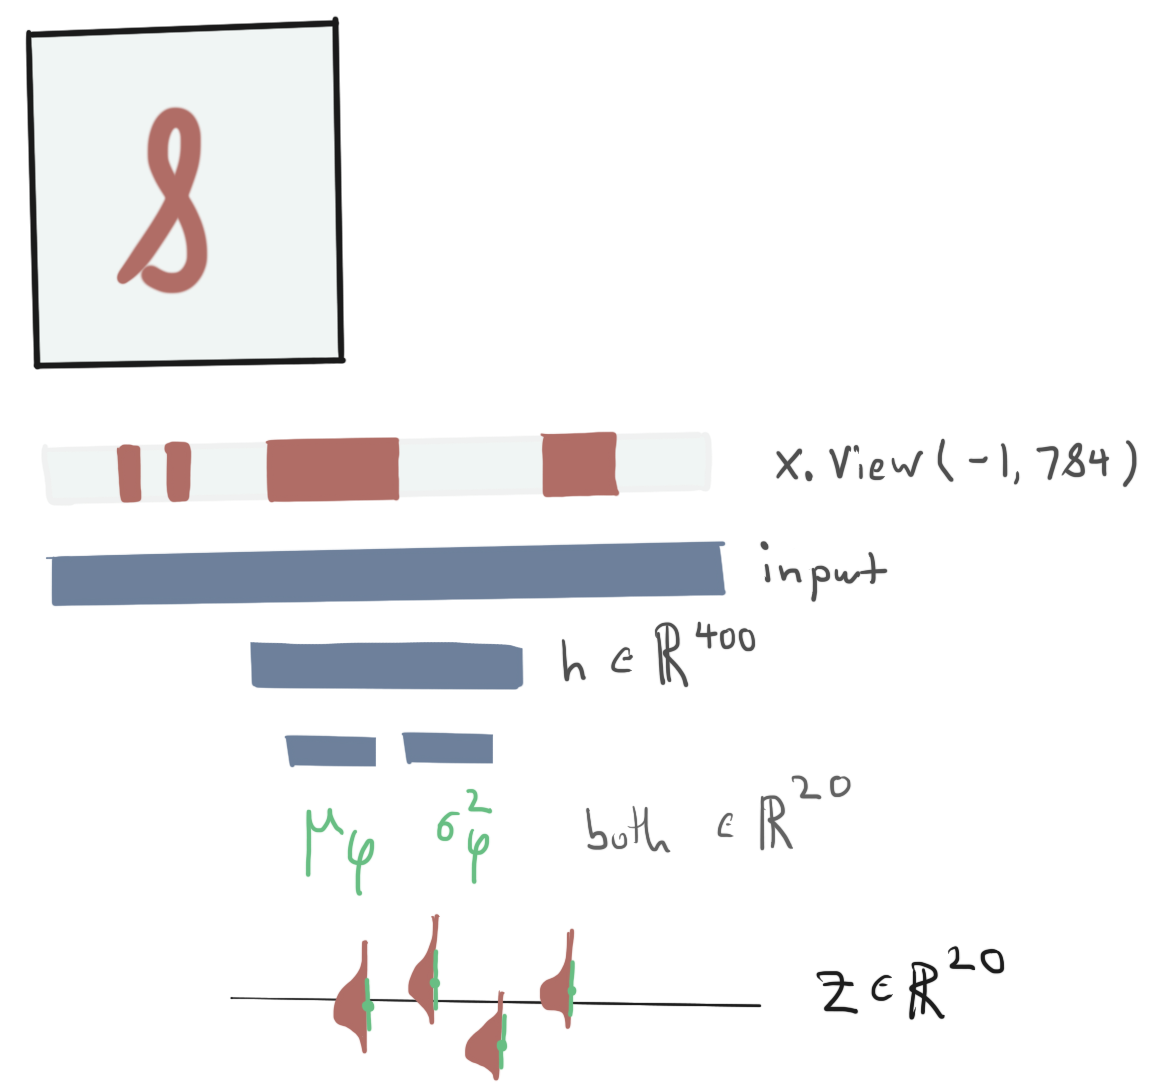 8
x.view(-1, 784)
input
h ∈ ℝ⁴⁰⁰
μφ σ²φ both ∈ ℝ²⁰
z ∈ ℝ²⁰